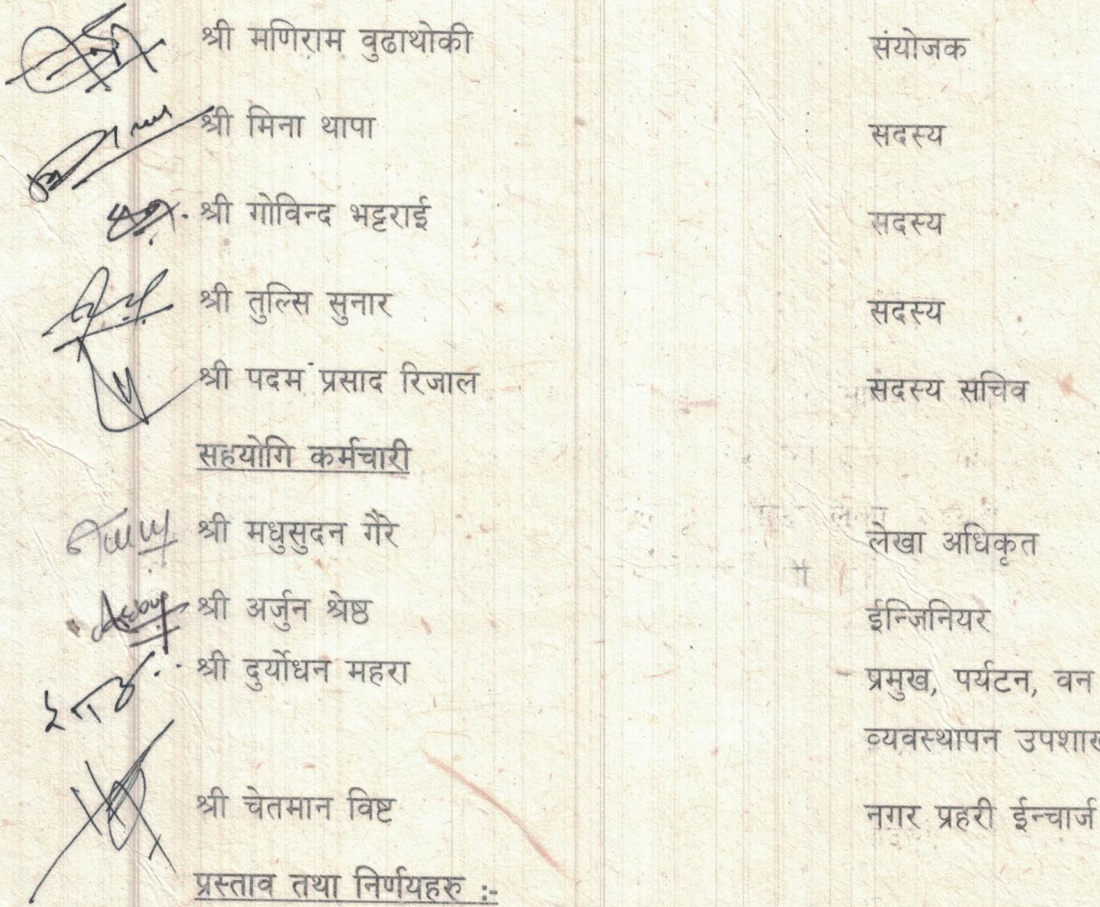 श्री मणिराम वुढाथोकी संयोजक
श्री मिना थापा सदस्य
श्री गोविन्द भट्टराई सदस्य
श्री तुल्सि सुनार सदस्य
श्री पदम प्रसाद रिजाल सदस्य सचिव
सहयोगि कर्मचारी
श्री मधुसुदन गैरे लेखा अधिकृत
श्री अर्जुन श्रेष्ठ ईन्जिनियर
श्री दुर्योधन महरा प्रमुख, पर्यटन, वन
व्यवस्थापन उपशाख
श्री चेतमान विष्ट नगर प्रहरी ईन्चार्ज
प्रस्ताव तथा निर्णयहरु :-